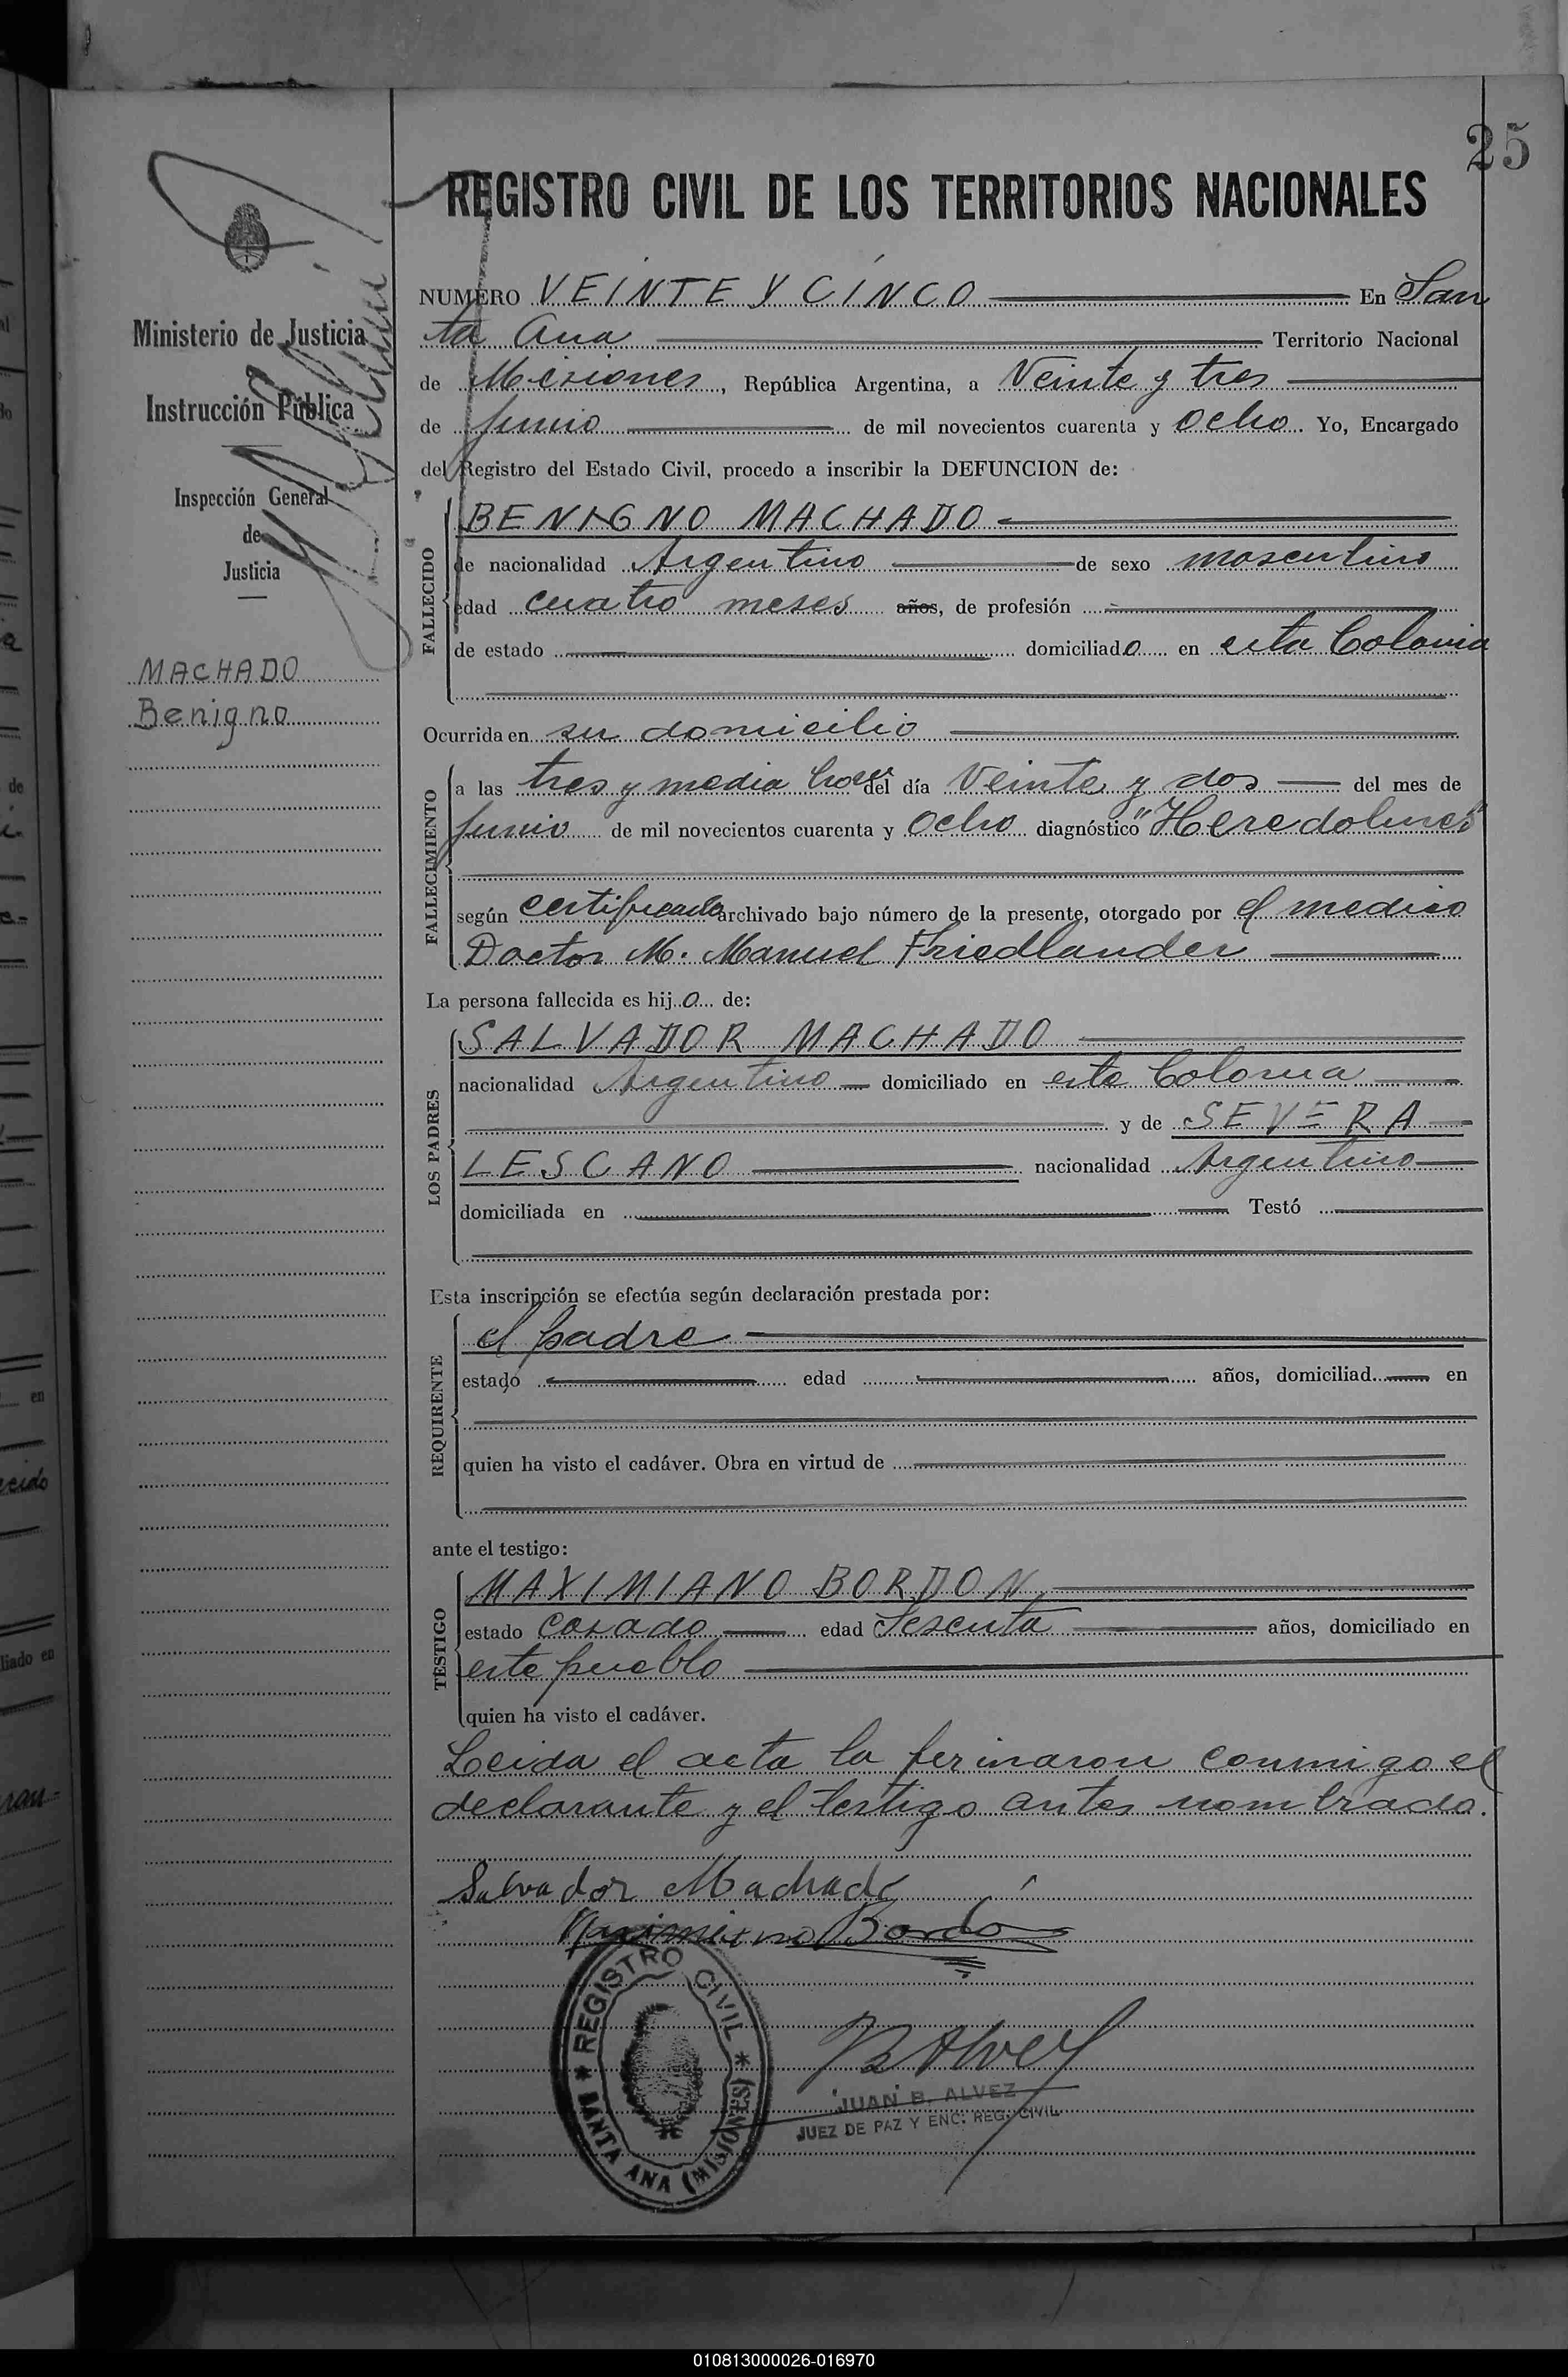 25
REGISTRO CIVIL DE LOS TERRITORIOS NACIONALES
NUMERO VEINTE Y CINCO En San
ta Ana Territorio Nacional
de Misiones, República Argentina, a Veinte y tres
de Junio de mil novecientos cuarenta y Ocho. Yo, Encargado
del Registro del Estado Civil, procedo a inscribir la DEFUNCION de:
Ministerio de Justicia
Instrucción Pública
Inspección General
de
Justicia
MACHADO
Benigno
FALLECIDO
BENIGNO MACHADO
de nacionalidad Argentino de sexo masculino
edad cuatro meses años, de profesión
de estado domiciliado en esta Colonia
Ocurrida en su domicilio
FALLECIMIENTO
a las tres y media horas del día Veinte y dos del mes de
Junio de mil novecientos cuarenta y Ocho diagnóstico "Heredolues"
según certificado archivado bajo número de la presente, otorgado por el medico
Doctor M. Manuel Friedlander
La persona fallecida es hijo de:
LOS PADRES
SALVADOR MACHADO
nacionalidad Argentino domiciliado en esta Colonia
y de SEVERA
LESCANO nacionalidad Argentino
domiciliada en Testó
Esta inscripción se efectúa según declaración prestada por:
REQUIRENTE
el padre
estado edad años, domiciliad en
quien ha visto el cadáver. Obra en virtud de
ante el testigo:
TESTIGO
MAXIMIANO BORDON
estado casado edad Sesenta años, domiciliado en
este pueblo
quien ha visto el cadáver.
Leida el acta la firmaron conmigo el
declarante y el testigo antes nombrado.
Salvador Machado
Maximiano Bordo
REGISTRO CIVIL
SANTA ANA (MISIONES)
JB Alvez
JUAN B. ALVEZ
JUEZ DE PAZ Y ENC. REG. CIVIL
010813000026-016970